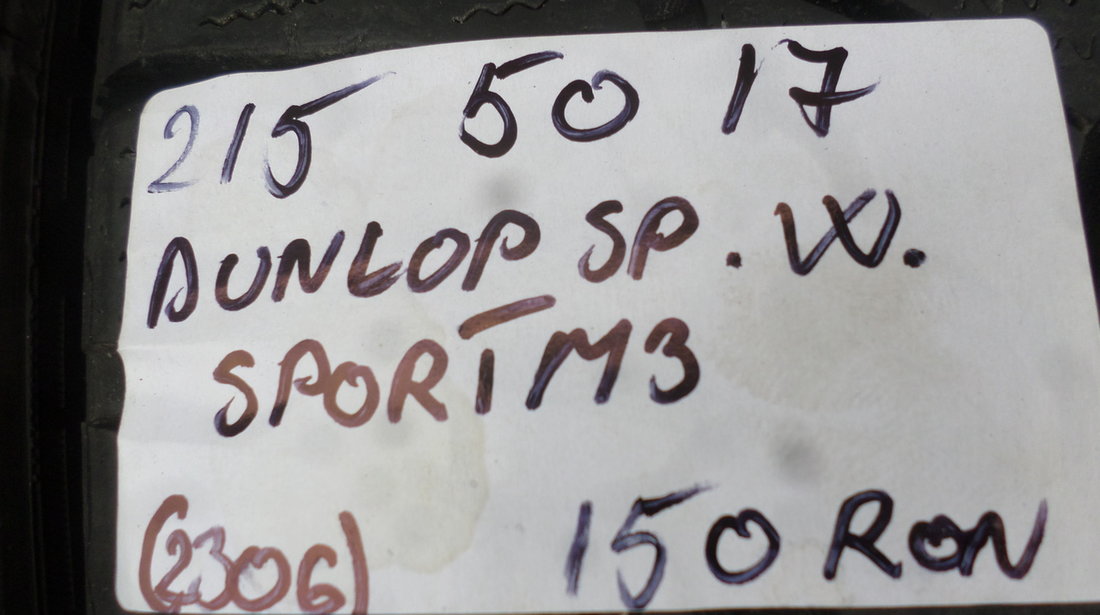 215 50 17
DUNLOP SP. W.
SPORT M3
(2306) 150 RON